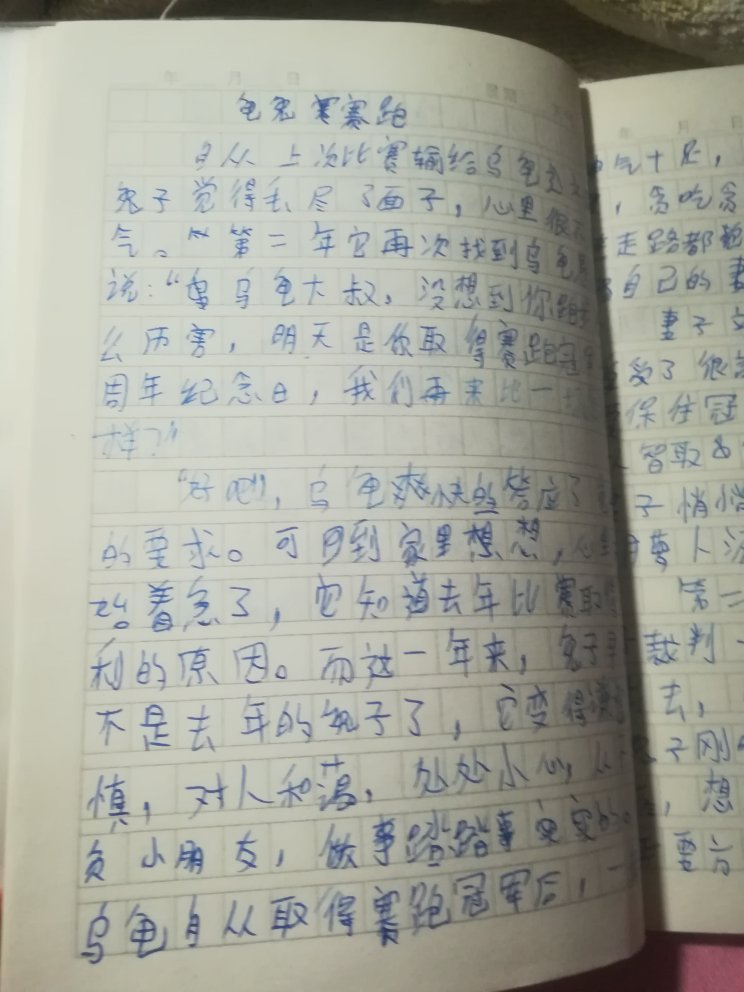 年 月 日 星期
龟兔赛赛跑
自从上次比赛输给乌龟
兔子觉得丢尽了面子，心里很
气。第二年它再次找到乌龟
说：“乌龟大叔，没想到你跑
么历害，明天是你取得赛跑冠
周年纪念日，我们再来比一
样？”
“好吧”，乌龟爽快的答应了
的要求。可回到家里想想，心里
始着急了，它知道去年比赛取
利的原因。而这一年来，兔子早
不是去年的兔子了，它变得
慎，对人和蔼，处处小心，
负小朋友，做事踏踏
乌龟自从取得赛跑冠军后，一
年 月 日
气十足，
，贪吃贪
走路都
自己的
妻子
受了很
保住冠
智取
子悄悄
第二
裁判
去，
子刚
，想
要